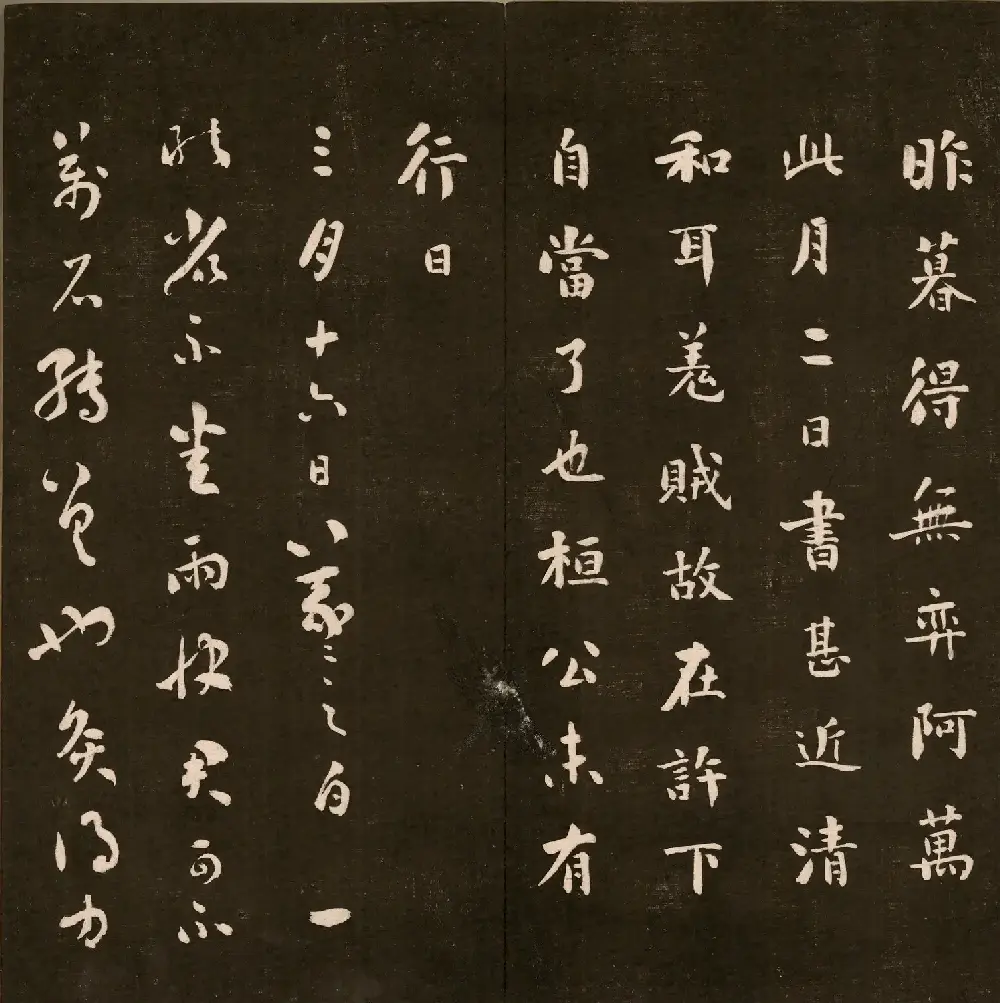 昨暮得無弈阿萬
此月二日書甚近清
和耳羌賊故在許下
自當了也桓公未有
行日
三月十六日羲之白一
省示雨快君可不
萬石轉差也灸得力